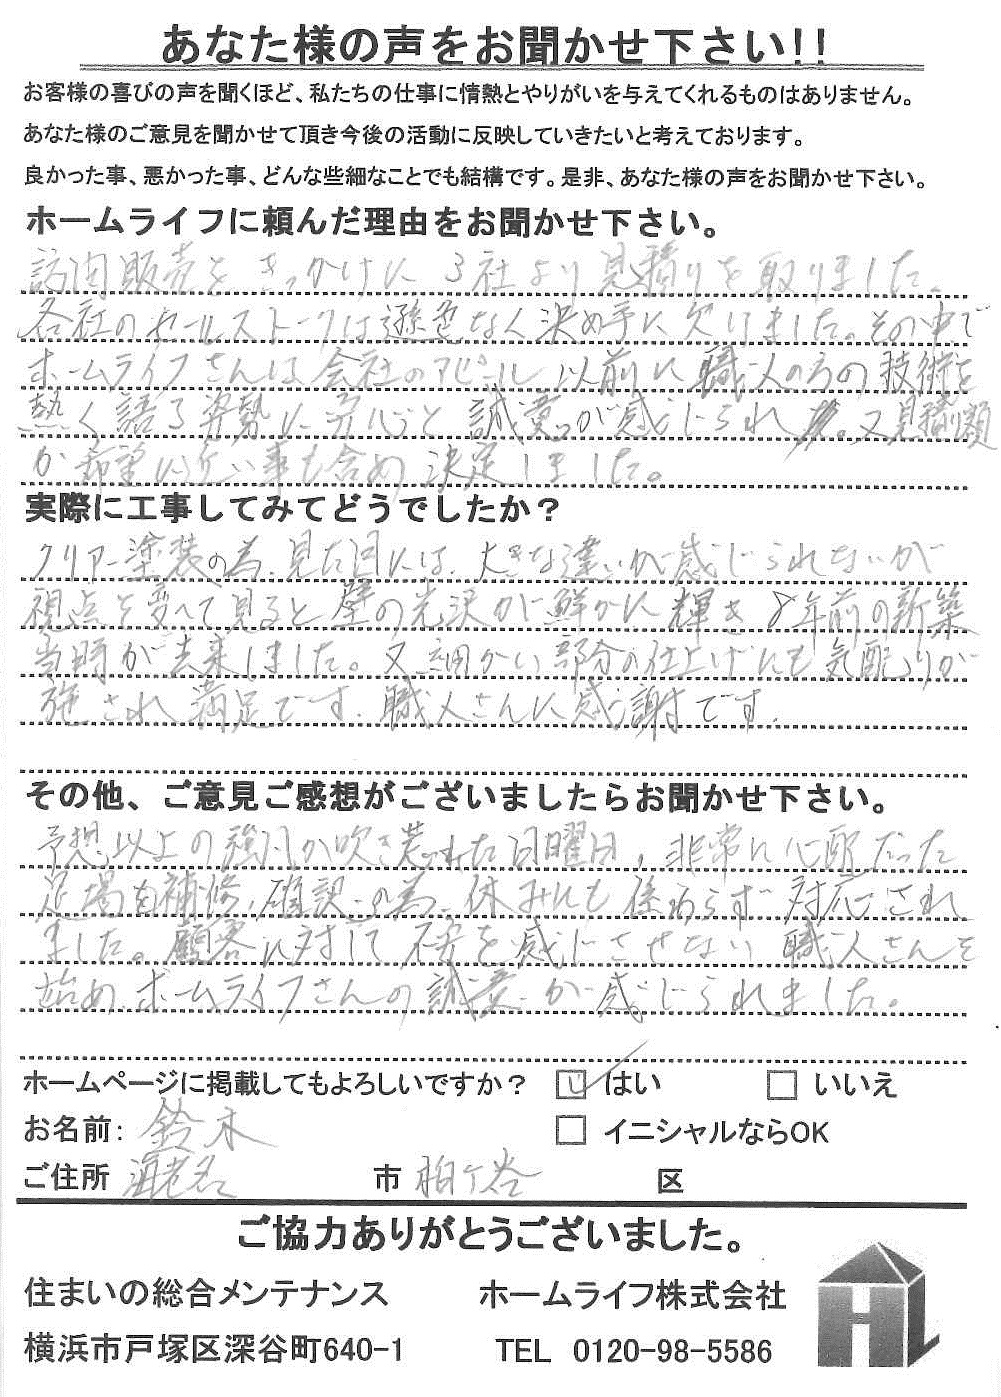 あなた様の声をお聞かせ下さい!!
お客様の喜びの声を聞くほど、私たちの仕事に情熱とやりがいを与えてくれるものはありません。
あなた様のご意見を聞かせて頂き今後の活動に反映していきたいと考えております。
良かった事、悪かった事、どんな些細なことでも結構です。是非、あなた様の声をお聞かせ下さい。
ホームライフに頼んだ理由をお聞かせ下さい。
訪問販売をきっかけに3社より見積りを取りました。
各社のセールストークは遜色なく決め手に欠けました。その中で
ホームライフさんは会社のアピール以前に職人の方の技術を
熱く語る姿勢に安心と誠意が感じられ。又見積り額
が希望に近い事も含め決定しました。
実際に工事してみてどうでしたか?
クリアー塗装の為、見た目には、大きな違いが感じられないが
視点を変へて見ると壁の光沢が鮮かに輝き8年前の新築
当時が去来しました。又細かい部分の仕上げにも気配りが
施され満足です。職人さんに感謝です。
その他、ご意見ご感想がございましたらお聞かせ下さい。
予想以上の強風が吹き荒れた日曜日、非常に心配だった
足場を補修、確認の為、休みにも係わらず対応され
ました。顧客に対して不安を感じさせない職人さんを
始め、ホームライフさんの誠意が感じられました。
ホームページに掲載してもよろしいですか? はい いいえ
お名前: 鈴木 イニシャルならOK
ご住所 海老名 市 柏ヶ谷 区
ご協力ありがとうございました。
住まいの総合メンテナンス ホームライフ株式会社
横浜市戸塚区深谷町640-1 TEL 0120-98-5586
HL